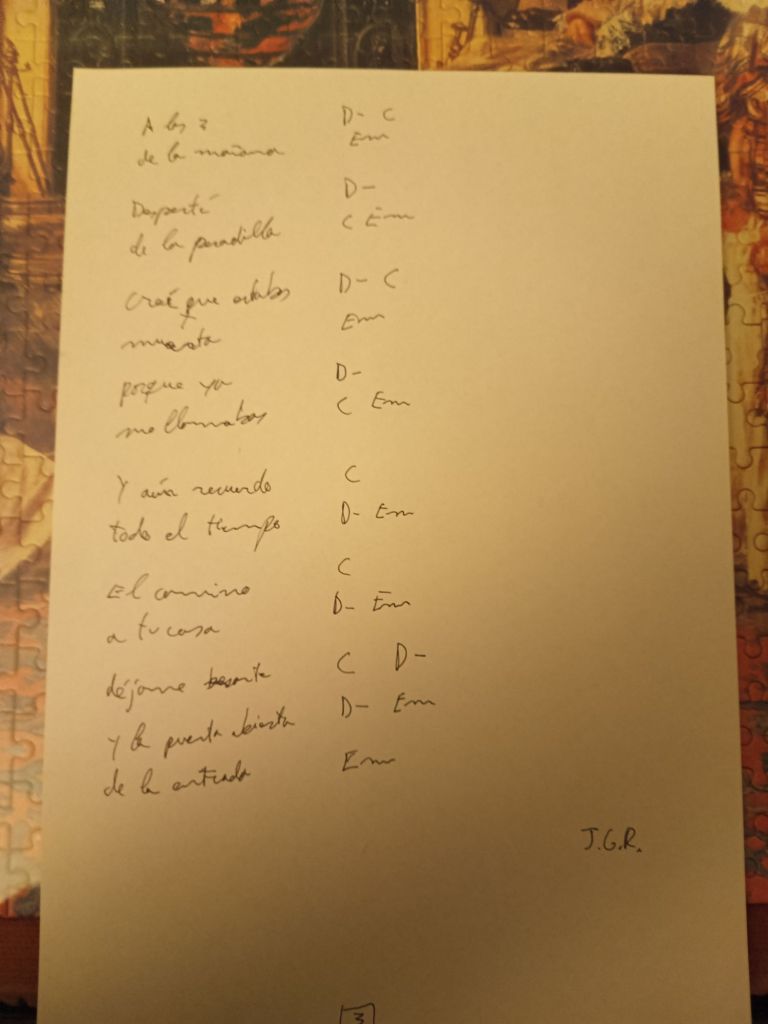 A las 3 D- C
de la mañana Em
Desperté D-
de la pesadilla C Em
Creí que estabas D- C
muerta Em
porque ya D-
me llamabas C Em
Y aún recuerdo C
todo el tiempo D- Em
El camino C
a tu casa D- Em
déjame besarte C D-
Y la puerta abierta D- Em
de la entrada Em
J.G.R.
3